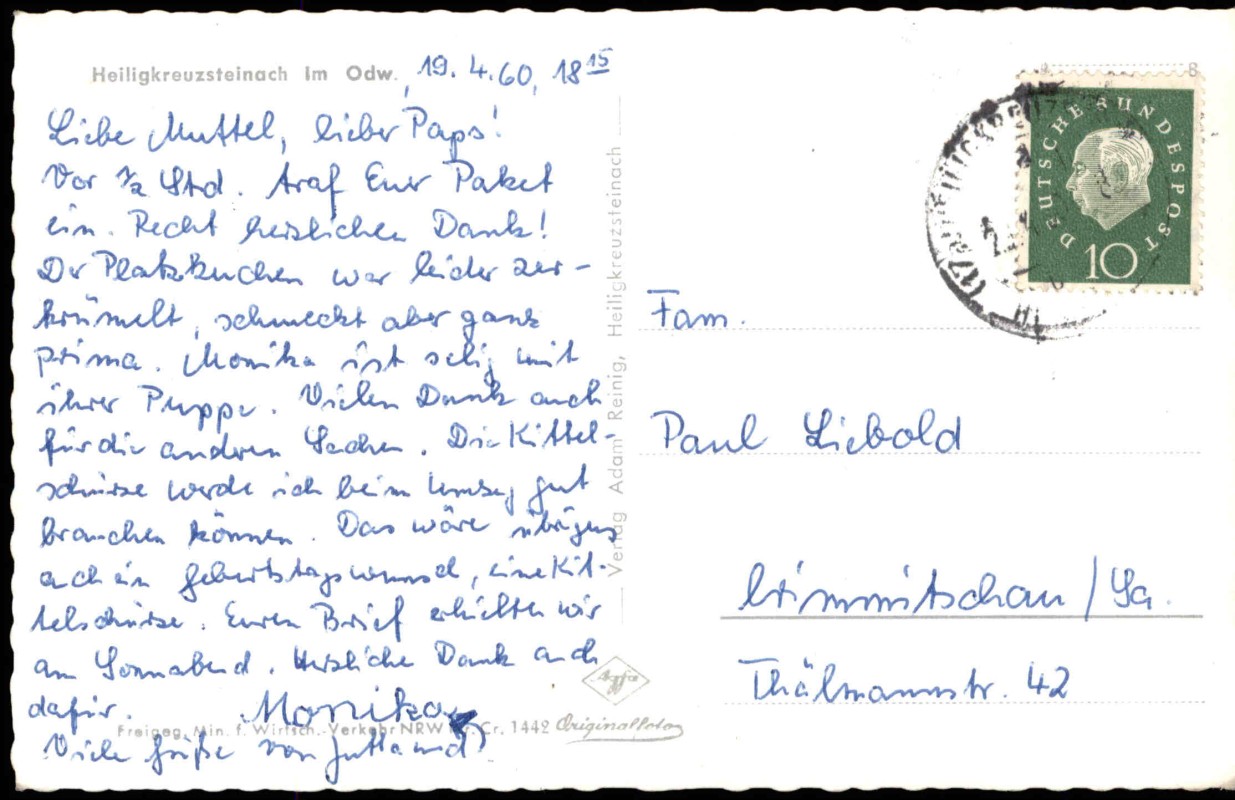 Heiligkreuzsteinach im Odw.
19. 4. 60, 18 15
Liebe Muttel, lieber Paps!
Vor 1/2 Std. traf Euer Paket
ein. Recht herzlichen Dank!
Der Platzkuchen war leider zer-
krümelt, schmeckt aber ganz
prima. Monika ist selig mit
ihrer Puppe. Vielen Dank auch
für die anderen Sachen. Die Kittel-
schürze werde ich beim Umzug gut
brauchen können. Das wäre übrigens
auch ein Geburtstagswunsch, eine Kit-
telschürze. Euren Brief erhielten wir
am Sonnabend. Herzliche Dank auch
dafür. Monika
Viele Grüße von Jutta und
Freigeg. Min. f. Wirtsch.-Verkehr NRW Cr. 1442
Agfa
Originalfoto
Verlag Adam Reinig, Heiligkreuzsteinach
DEUTSCHE BUNDESPOST
10
Fam.
Paul Liebold
Crimmitschau / Sa.
Thälmannstr. 42